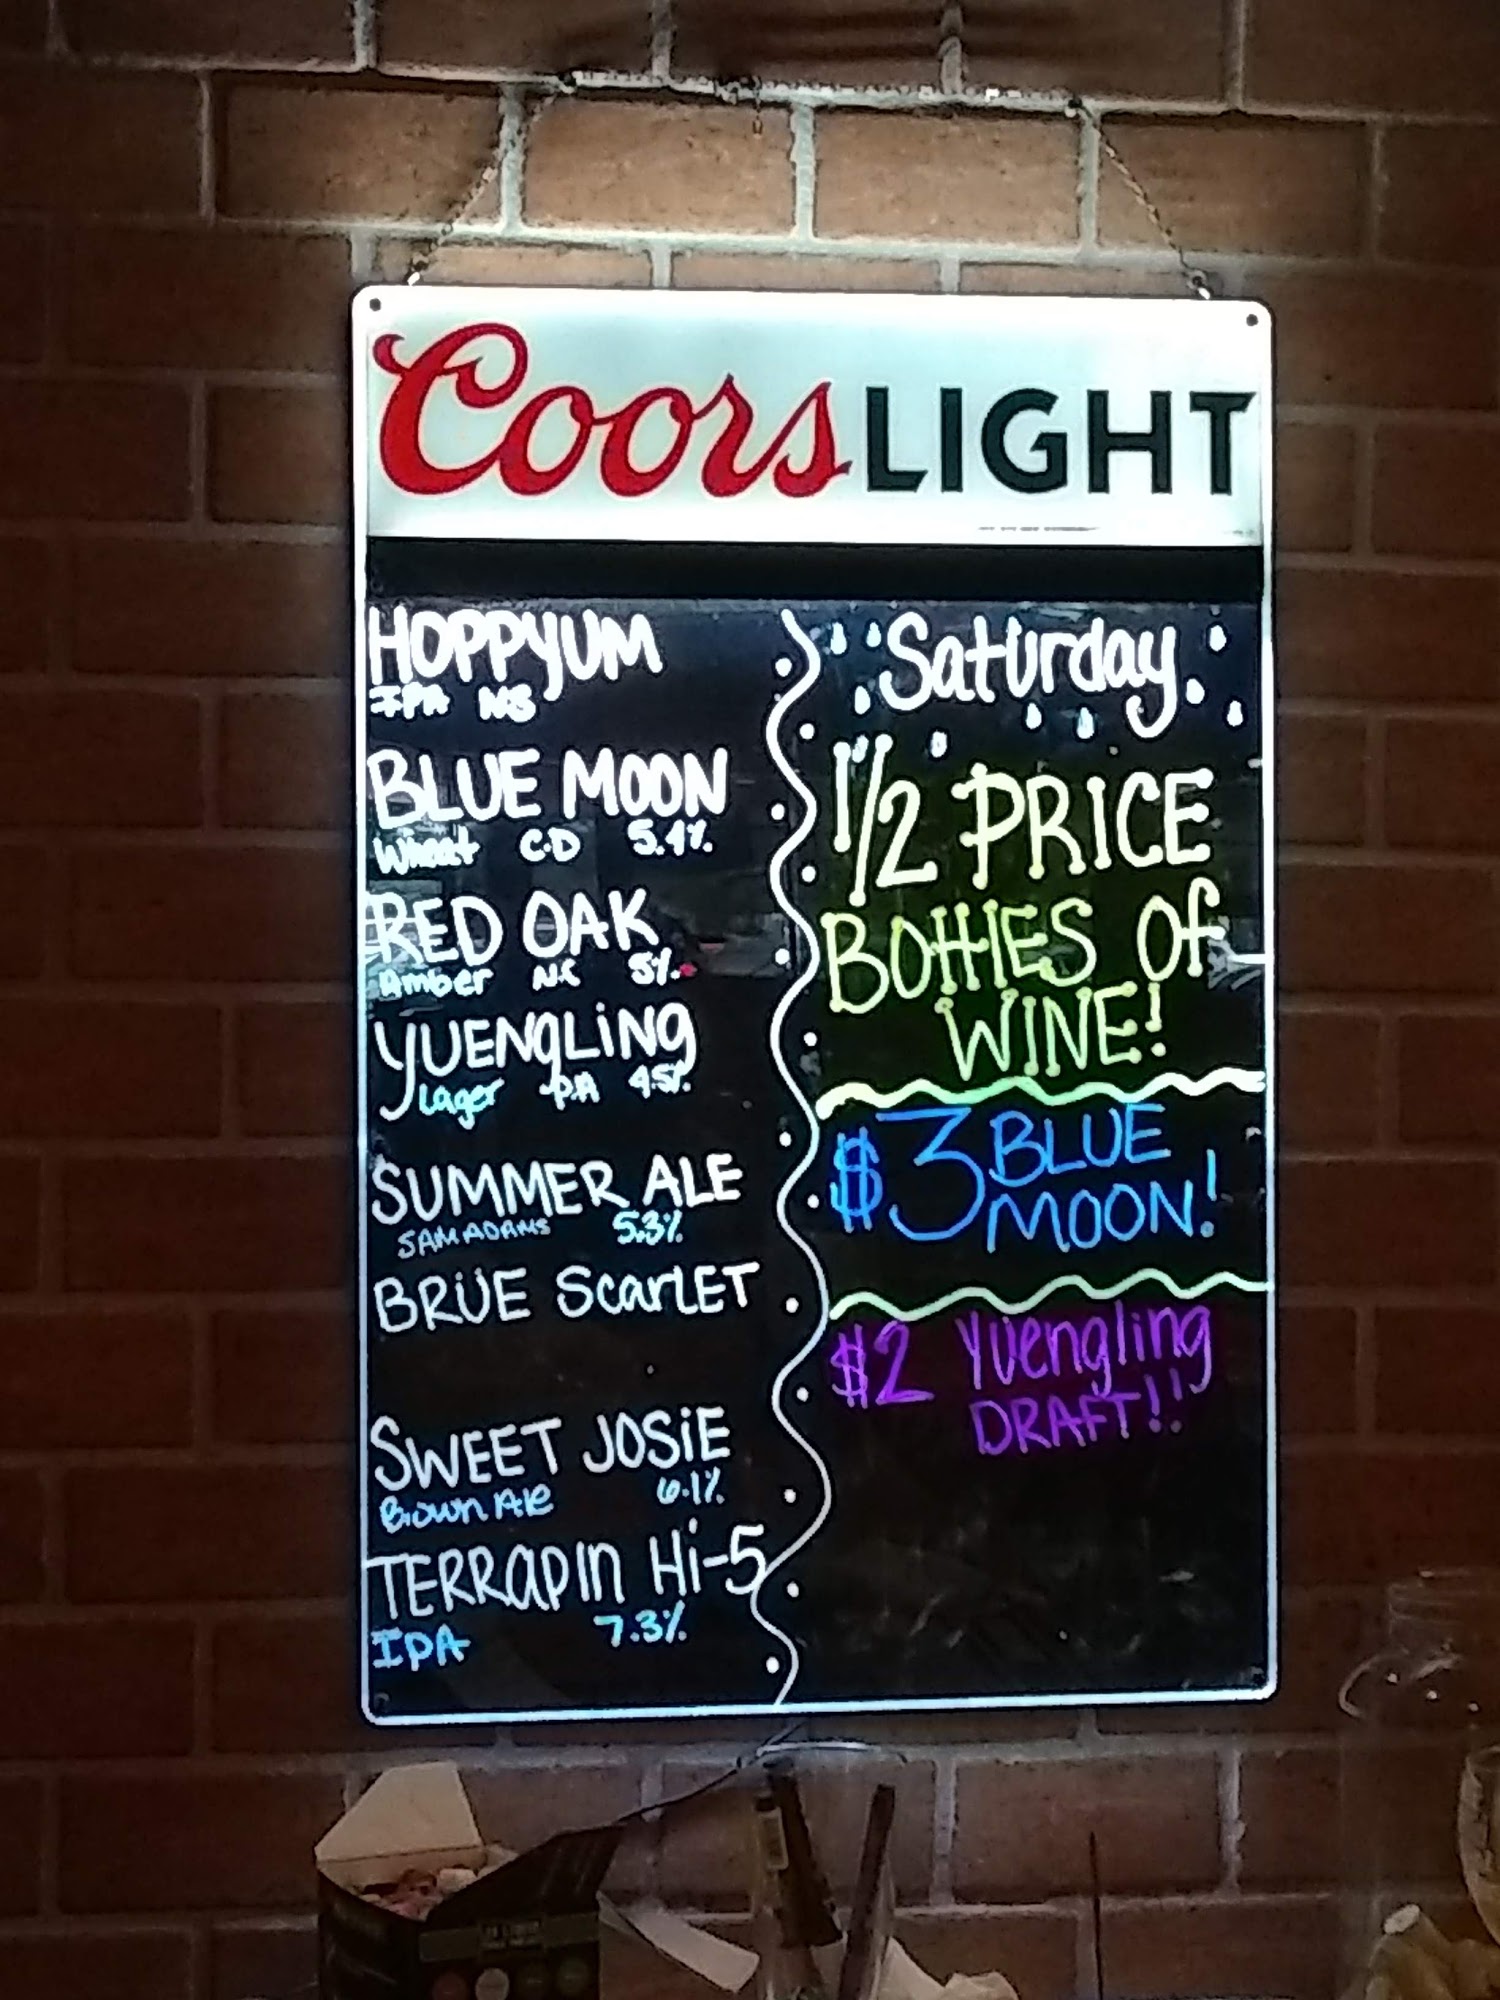 Coors LIGHT
HOPPYUM
IPA
BLUE MOON
Wheat C.D 5.4%
RED OAK
Amber N.C 5%
YUENGLiNG
Lager P.A 4.5%
SUMMER ALE
SAM ADAMS 5.3%
BRÜE ScarLET
SWEET JOSiE
Brown Ale 6.1%
TERRAPIN Hi-5
IPA 7.3%
Saturday
1/2 PRICE
BOttlES Of
WINE!
$3 BLUE
MOON!
$2 Yuengling
DRAFT!!